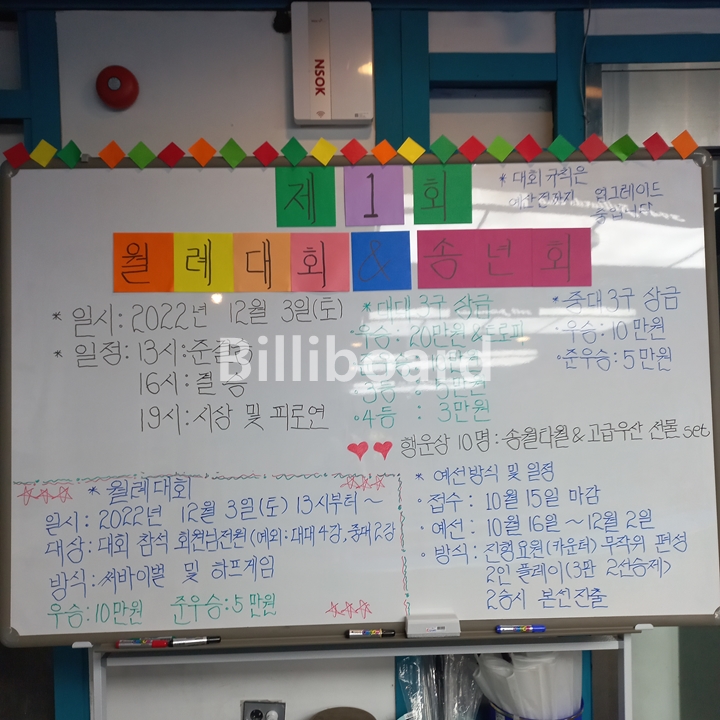 NSOK
제 1 회
* 대회 규칙은
업그레이드
월례대회 & 송년회
* 일시: 2022년 12월 3일(토)
* 일정: 13시:준
16시: 결
19시: 시상 및 피로연
* 대대 3구 상금
· 우승: 20만원 & 트로피
3등 : 5만원
· 4등 : 3만원
* 중대 3구 상금
· 우승: 10만원
· 준우승: 5만원
Billiboard
행운상 10명: 송월타월 & 고급우산 선물 set
* 월례대회
일시: 2022년 12월 3일(토) 13시부터 ~
대상: 대회 참석 회원님전원 (예외: 대대 4강, 중대 2강)
방식: 써바이벌 및 하프게임
우승: 10만원 준우승: 5만원
* 예선방식 및 일정
· 접수: 10월 15일 마감
· 예선: 10월 16일 ~ 12월 2일
· 방식: 진행요원(카운터) 무작위 편성
2인 플레이(3판 2선승제)
2승시 본선진출